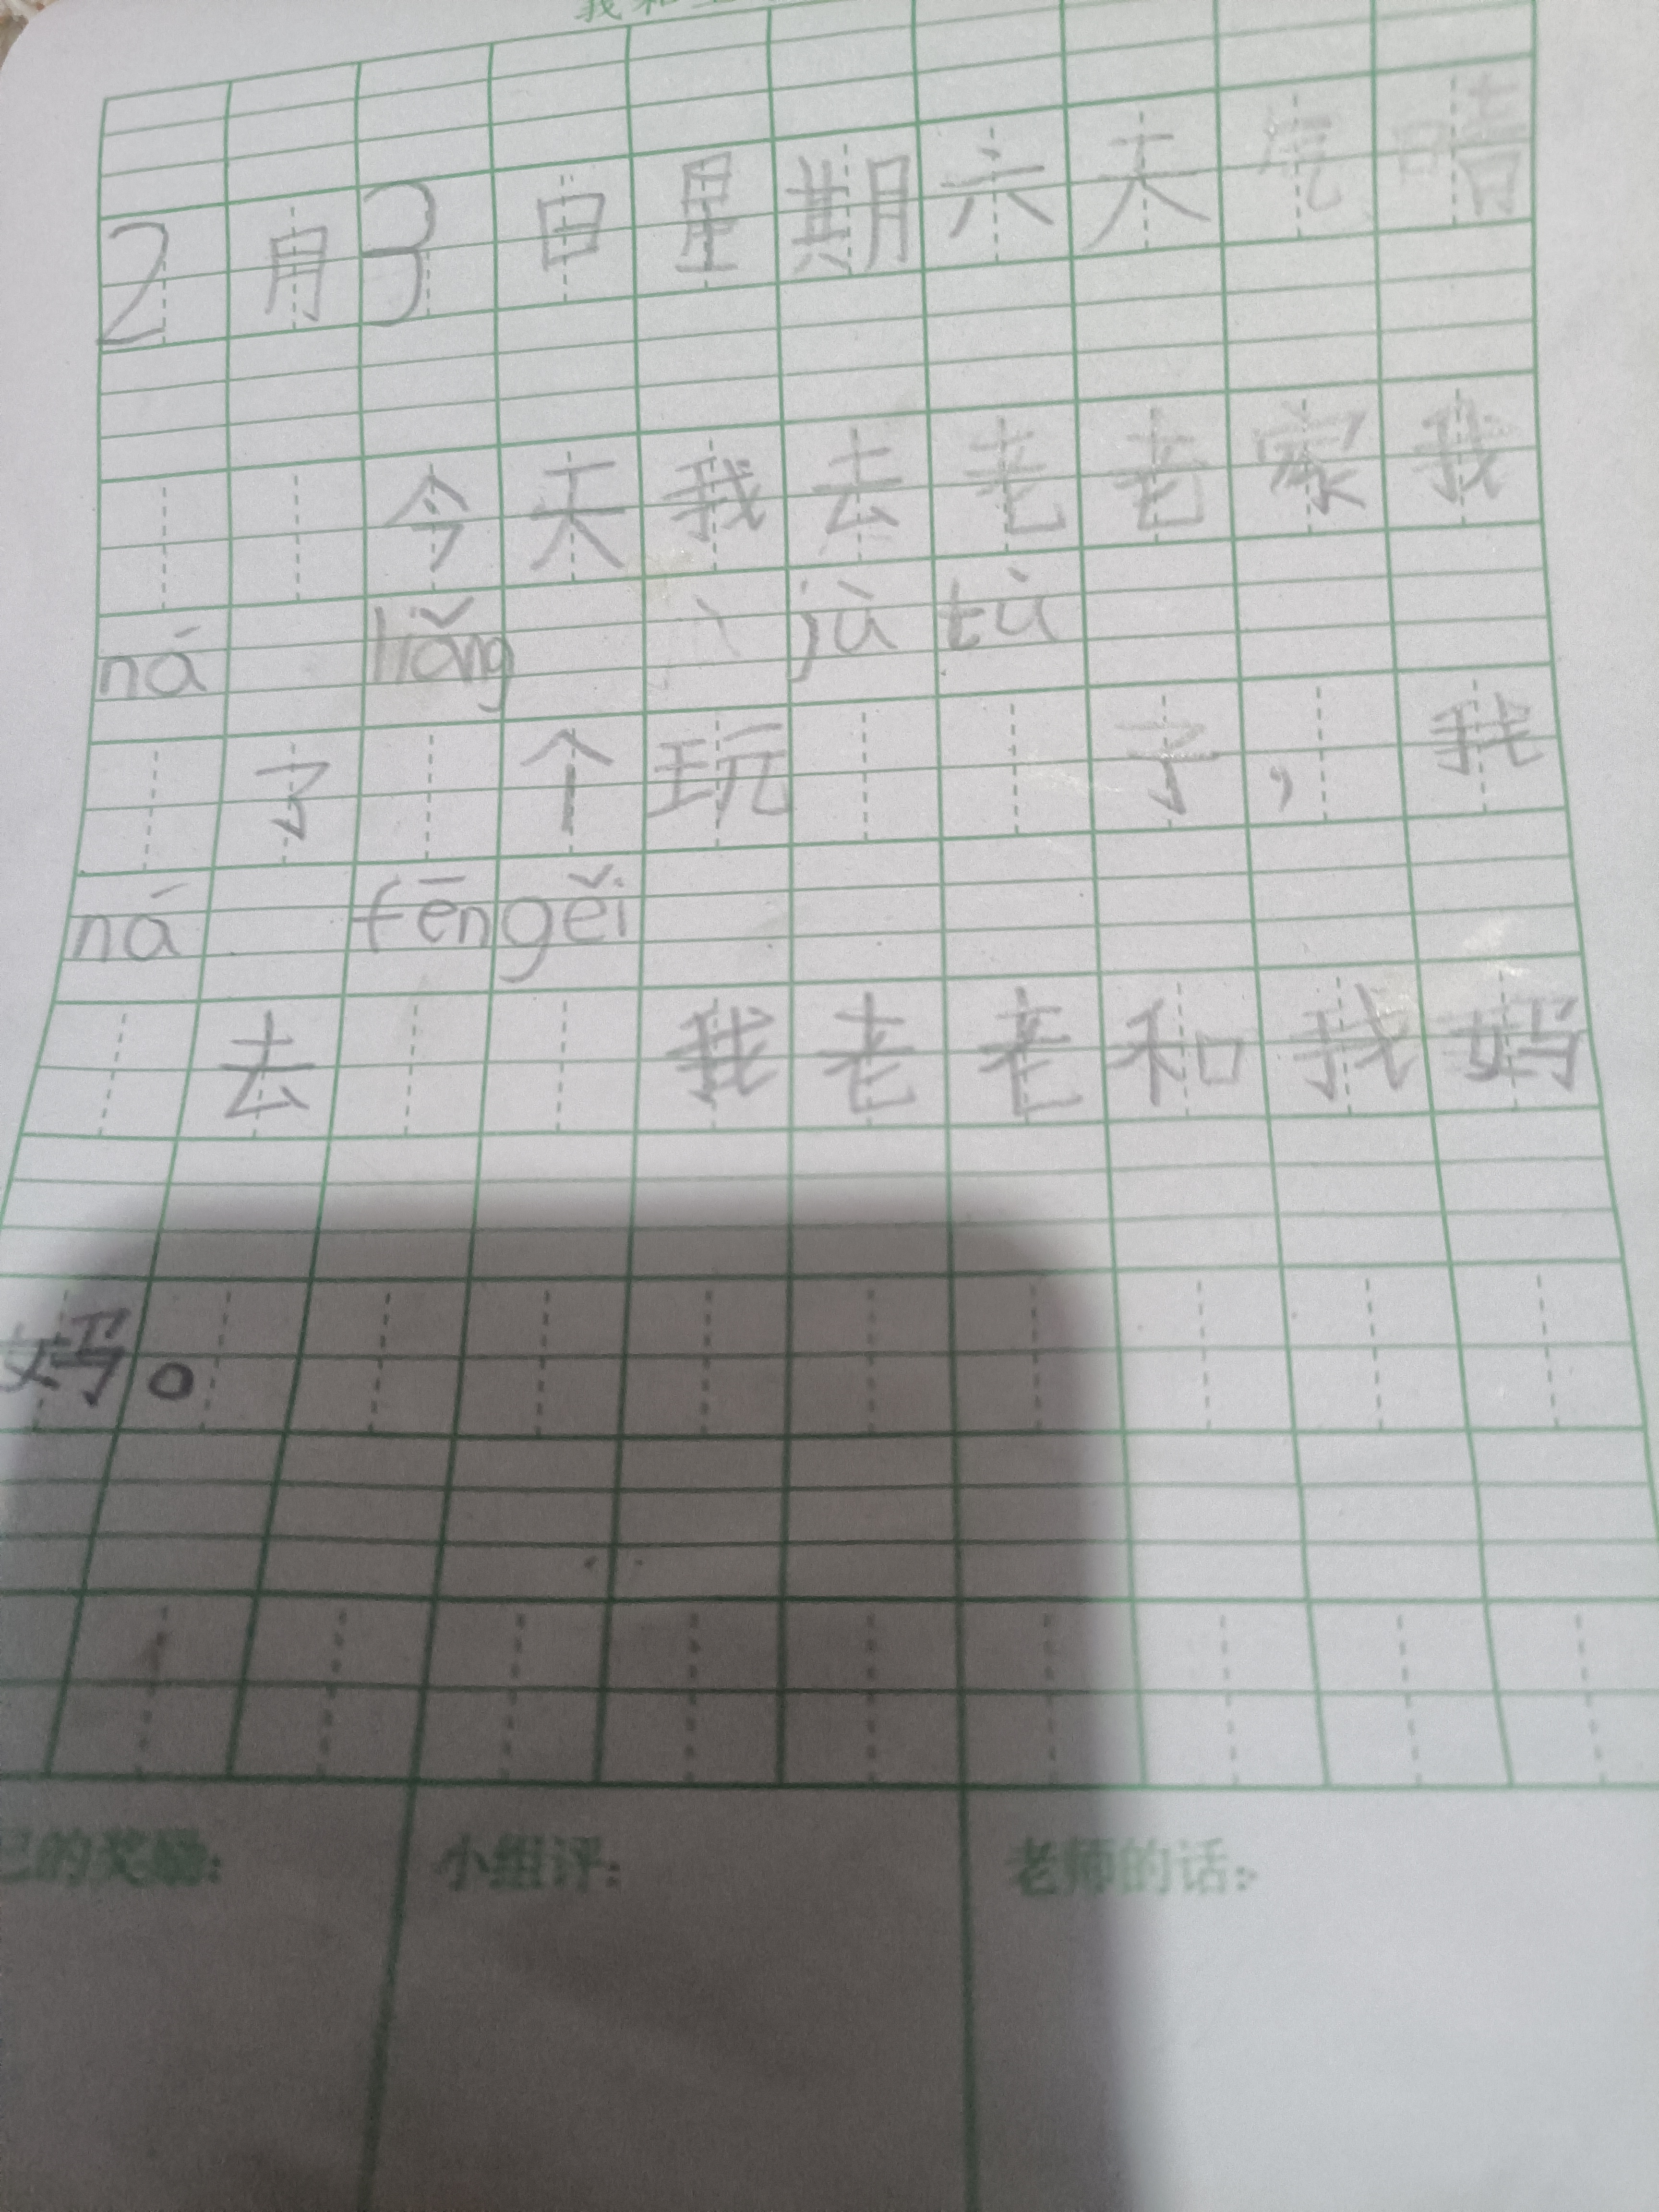 我和
2月3日星期六天气晴
今天我去老老家我
ná liǎng jù tù
了个玩子，我
ná fēn gěi
去我老老和我妈
妈。
己的奖励：小组评：老师的话：